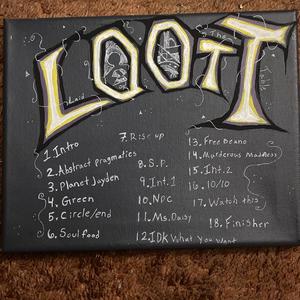 Laid
LOOTT
The
Table
1. Intro
2. Abstract pragmatics
3. Planet Jayden
4. Green
5. Circle/end
6. Soulfood
7. Rise up
8. S.P.
9. Int.1
10. NPC
11. Ms. Daisy
12. IDK What You Want
13. Free Deano
14. Murderous Madness
15. Int.2
16. 10/10
17. Watch this
18. Finisher